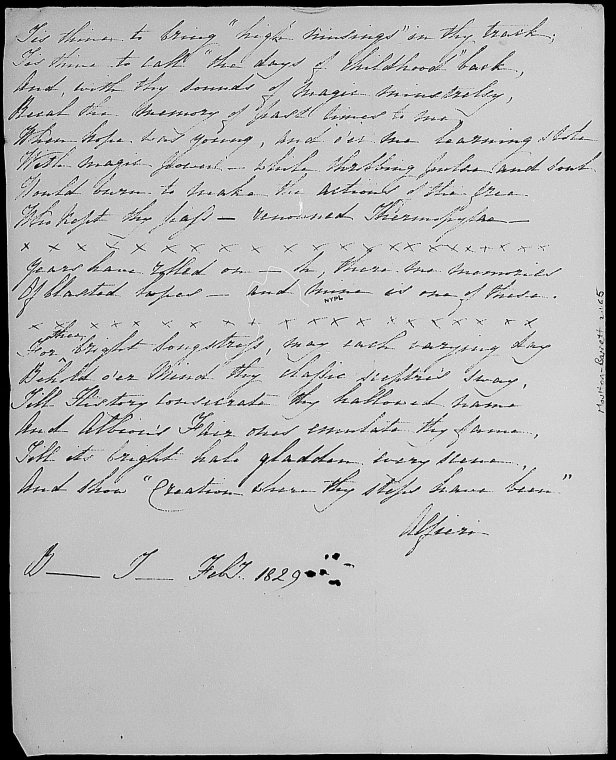 Tis thine to bring "high musings" in thy track,
Tis thine to call "the days of childhood" back,
And, with thy sounds of magic minstrelsy,
Recal the memory of past times to me,
When hope was young, and o'er me learning stole
With magic power — while throbbing pulse and soul
Would burn to make the actions of the free
Who kept thy pass — renowned Thermopylae —
x x x x x x x x x x x x x x x x x x x x x x x x x
Years have rolled on — oh, there are memories
Of blasted hopes — and mine is one of these.
NYPL
x x x x x x x x x x x x x x x x x x
For thee, bright Songstress, may each varying day
Behold o'er Mind thy classic sceptre's sway,
Till History consecrate thy hallowed name
And Albion's Fair ones emulate thy fame,
Till its bright halo gladden every scene,
And show "Creation where thy steps have been"
Alfieri
B— T— Feby. 1829
Moulton-Barrett 2165